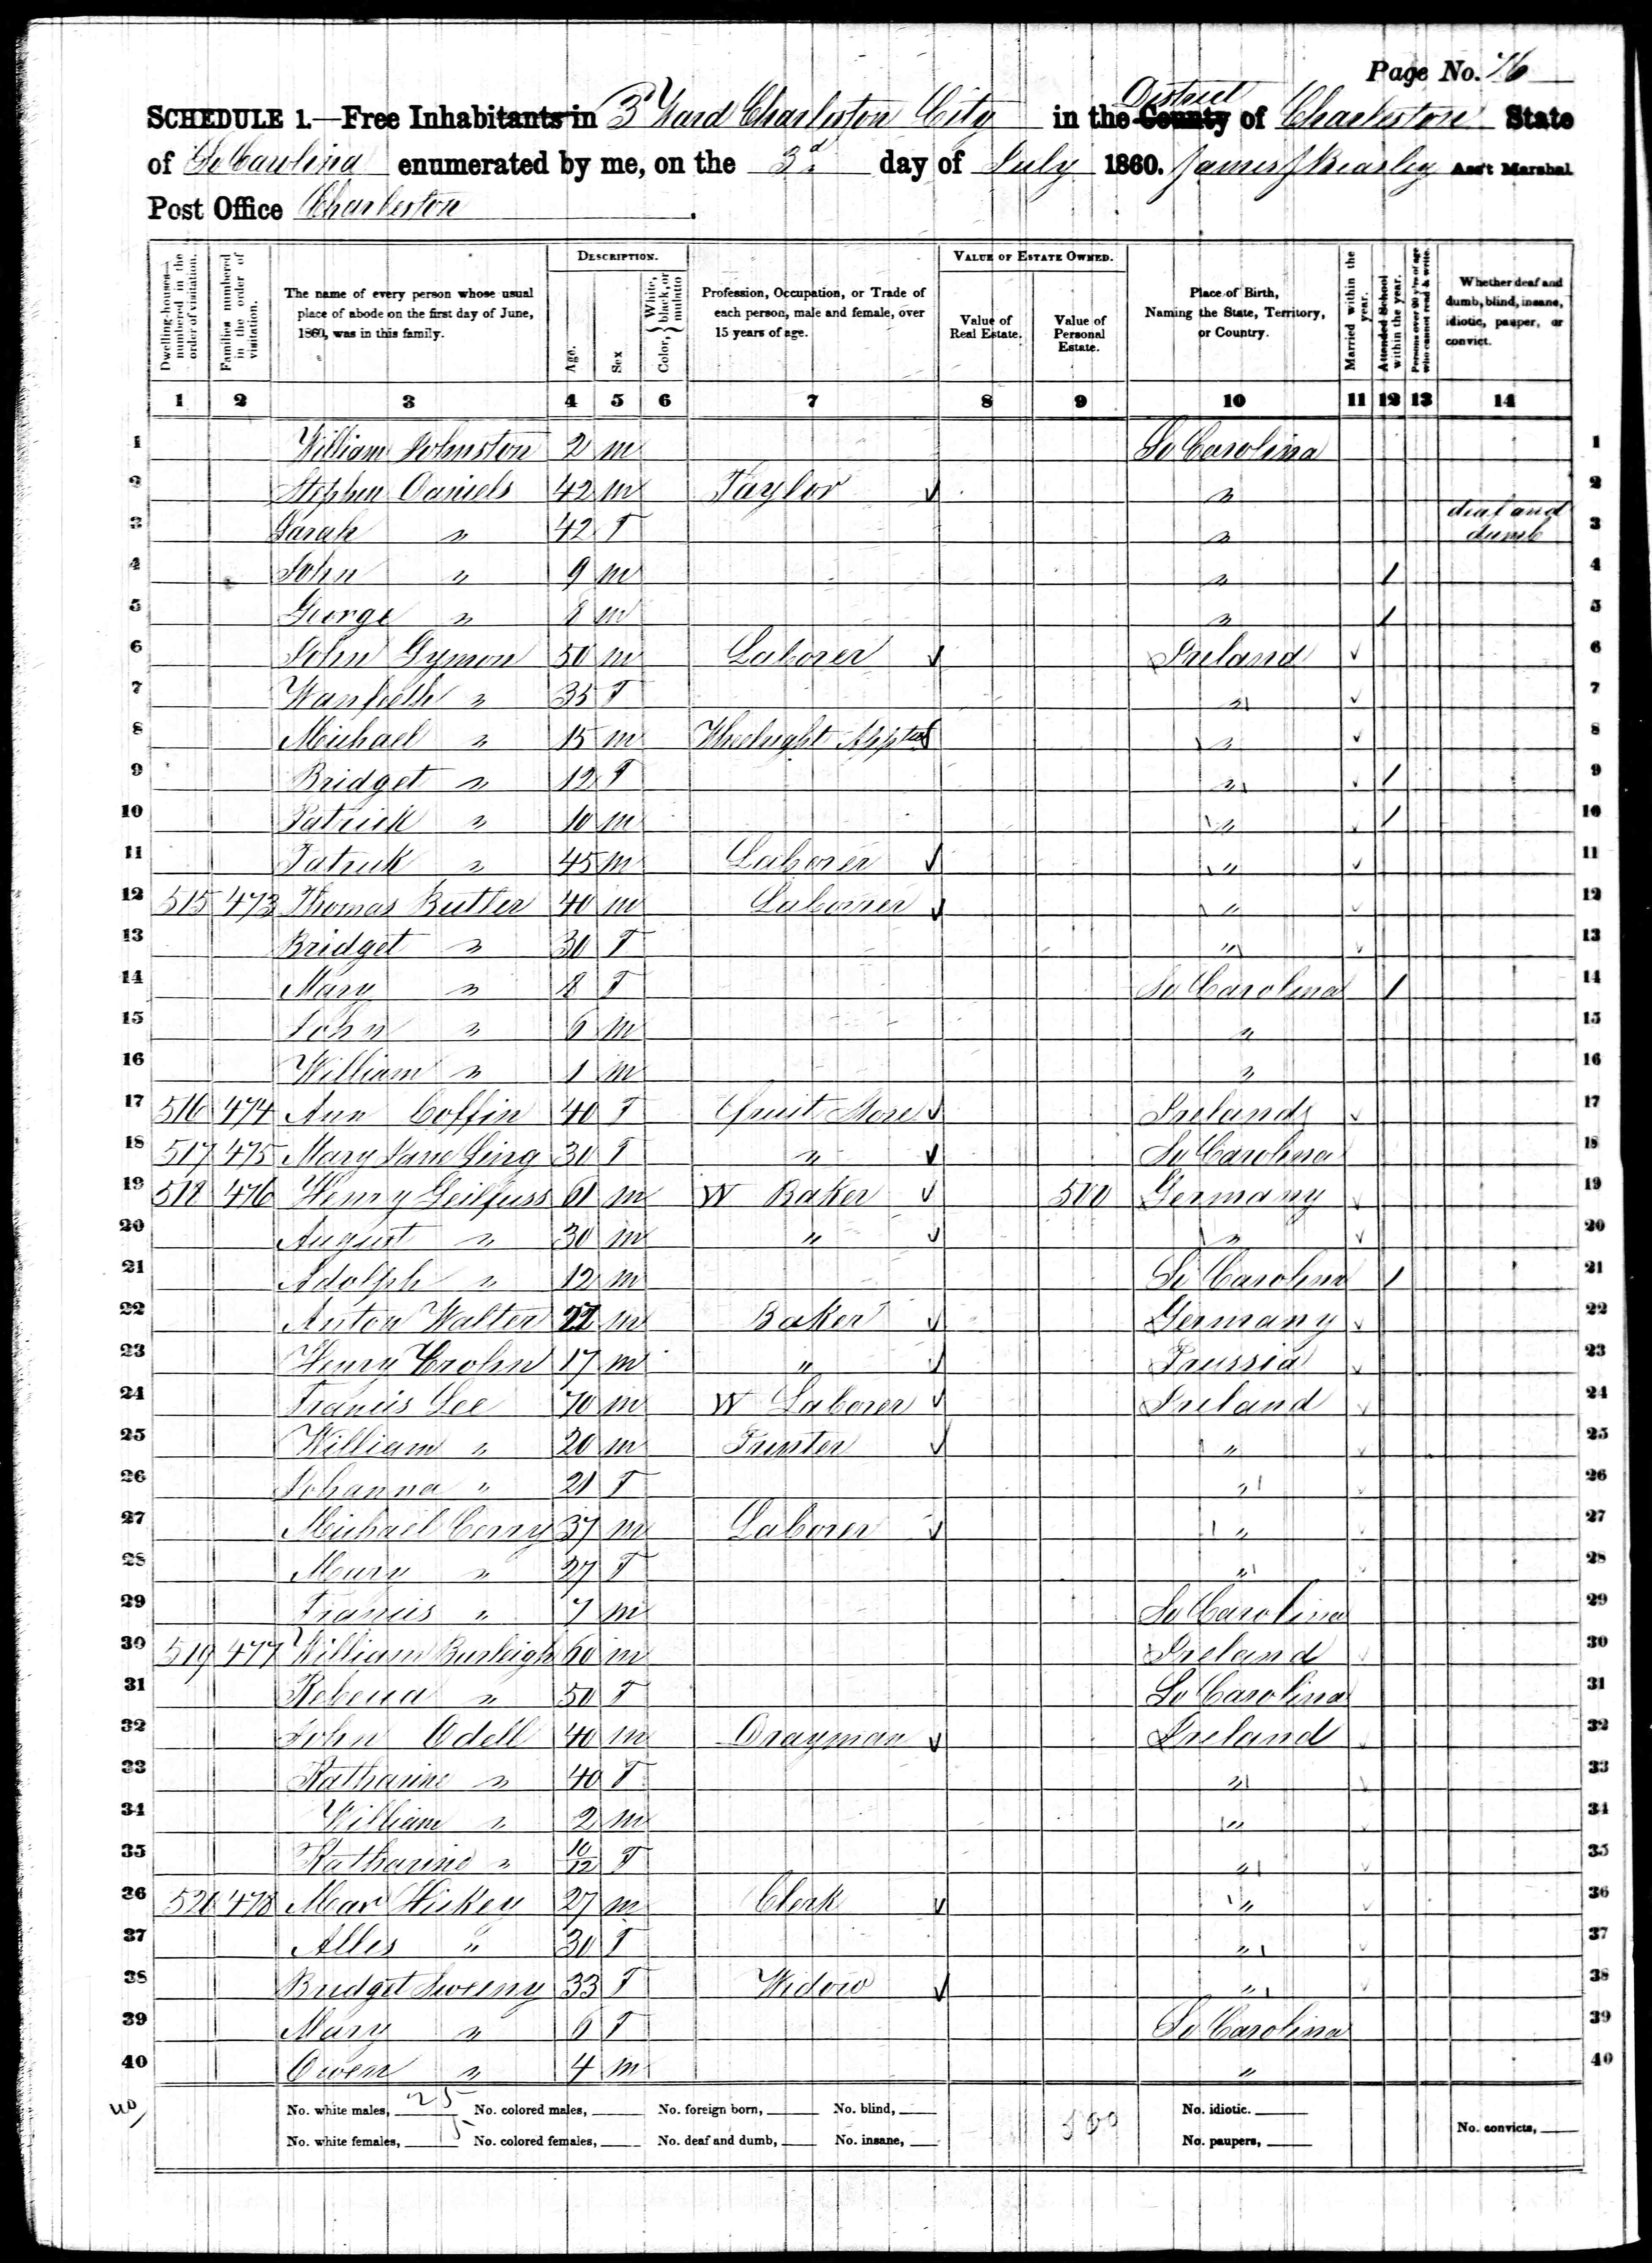 Page No. 76
SCHEDULE 1.—Free Inhabitants in 3 Ward Charleston City in the County District of Charleston State
of So Carolina enumerated by me, on the 3d. day of July 1860. James J Beasley Ass't Marshal
Post Office Charleston.
Dwelling-houses—numbered in the order of visitation.
Families numbered in the order of visitation.
The name of every person whose usual place of abode on the first day of June, 1860, was in this family.
DESCRIPTION.
Age.
Sex
Color, { White, black, or mulatto
Profession, Occupation, or Trade of each person, male and female, over 15 years of age.
VALUE OF ESTATE OWNED.
Value of Real Estate.
Value of Personal Estate.
Place of Birth, Naming the State, Territory, or Country.
Married within the year.
Attended School within the year.
Persons over 20 y'rs of age who cannot read & write.
Whether deaf and dumb, blind, insane, idiotic, pauper, or convict.
1 2 3 4 5 6 7 8 9 10 11 12 13 14
1 William Johnston 2 m So Carolina 1
2 Stephen Daniels 42 m Taylor ✓ " 2
3 Sarah " 42 F " deaf and dumb 3
4 John " 9 m " / 4
5 George " 8 m " / 5
6 John Gymon 50 m Laborer ✓ Ireland ✓ 6
7 " 35 F " ✓ 7
8 Michael " 15 m Wheelright " ✓ 8
9 Bridget " 12 F " ✓ / 9
10 Patrick " 10 m " ✓ / 10
11 Patrick " 45 m Laborer ✓ " ✓ 11
12 515 473 Thomas Butler 40 m Laborer ✓ " ✓ 12
13 Bridget " 30 F " ✓ 13
14 Mary " 8 F So Carolina / 14
15 John " 6 m " 15
16 William " 1 m " 16
17 516 474 Ann Coffin 40 F Fruit Store ✓ Ireland ✓ 17
18 517 475 Mary Jane Ling 30 F " ✓ So Carolina 18
19 518 476 Henry Geilfuss 61 m W Baker ✓ 500 Germany ✓ 19
20 August " 30 m " ✓ " ✓ 20
21 Adolph " 12 m So Carolina / 21
22 Anton Walter 22 m Baker ✓ Germany ✓ 22
23 Henry Crohn 17 m " ✓ Prussia ✓ 23
24 Francis Lee 70 m W Laborer ✓ Ireland ✓ 24
25 William " 20 m Printer ✓ " ✓ 25
26 Johanna " 21 F " ✓ 26
27 Michael Corry 37 m Laborer ✓ " ✓ 27
28 Mary " 27 F " ✓ 28
29 Francis " 7 m So Carolina 29
30 519 477 William Burleigh 60 m Ireland ✓ 30
31 Rebecca " 50 F So Carolina 31
32 John Odell 40 m Drayman ✓ Ireland ✓ 32
33 Katharine " 40 F " ✓ 33
34 William " 2 m " ✓ 34
35 Katharine " 10/12 F " ✓ 35
36 520 478 Hickey 27 m Clerk ✓ " ✓ 36
37 Alles " 30 F " ✓ 37
38 Bridget Sweeny 33 F Widow ✓ " ✓ 38
39 Mary " 6 F So Carolina 39
40 Owen " 4 m " 40
No. white males, 25 No. colored males, No. foreign born, No. blind, 500 No. idiotic.
No. white females, 15 No. colored females, No. deaf and dumb, No. insane, No. paupers, No. convicts,
40